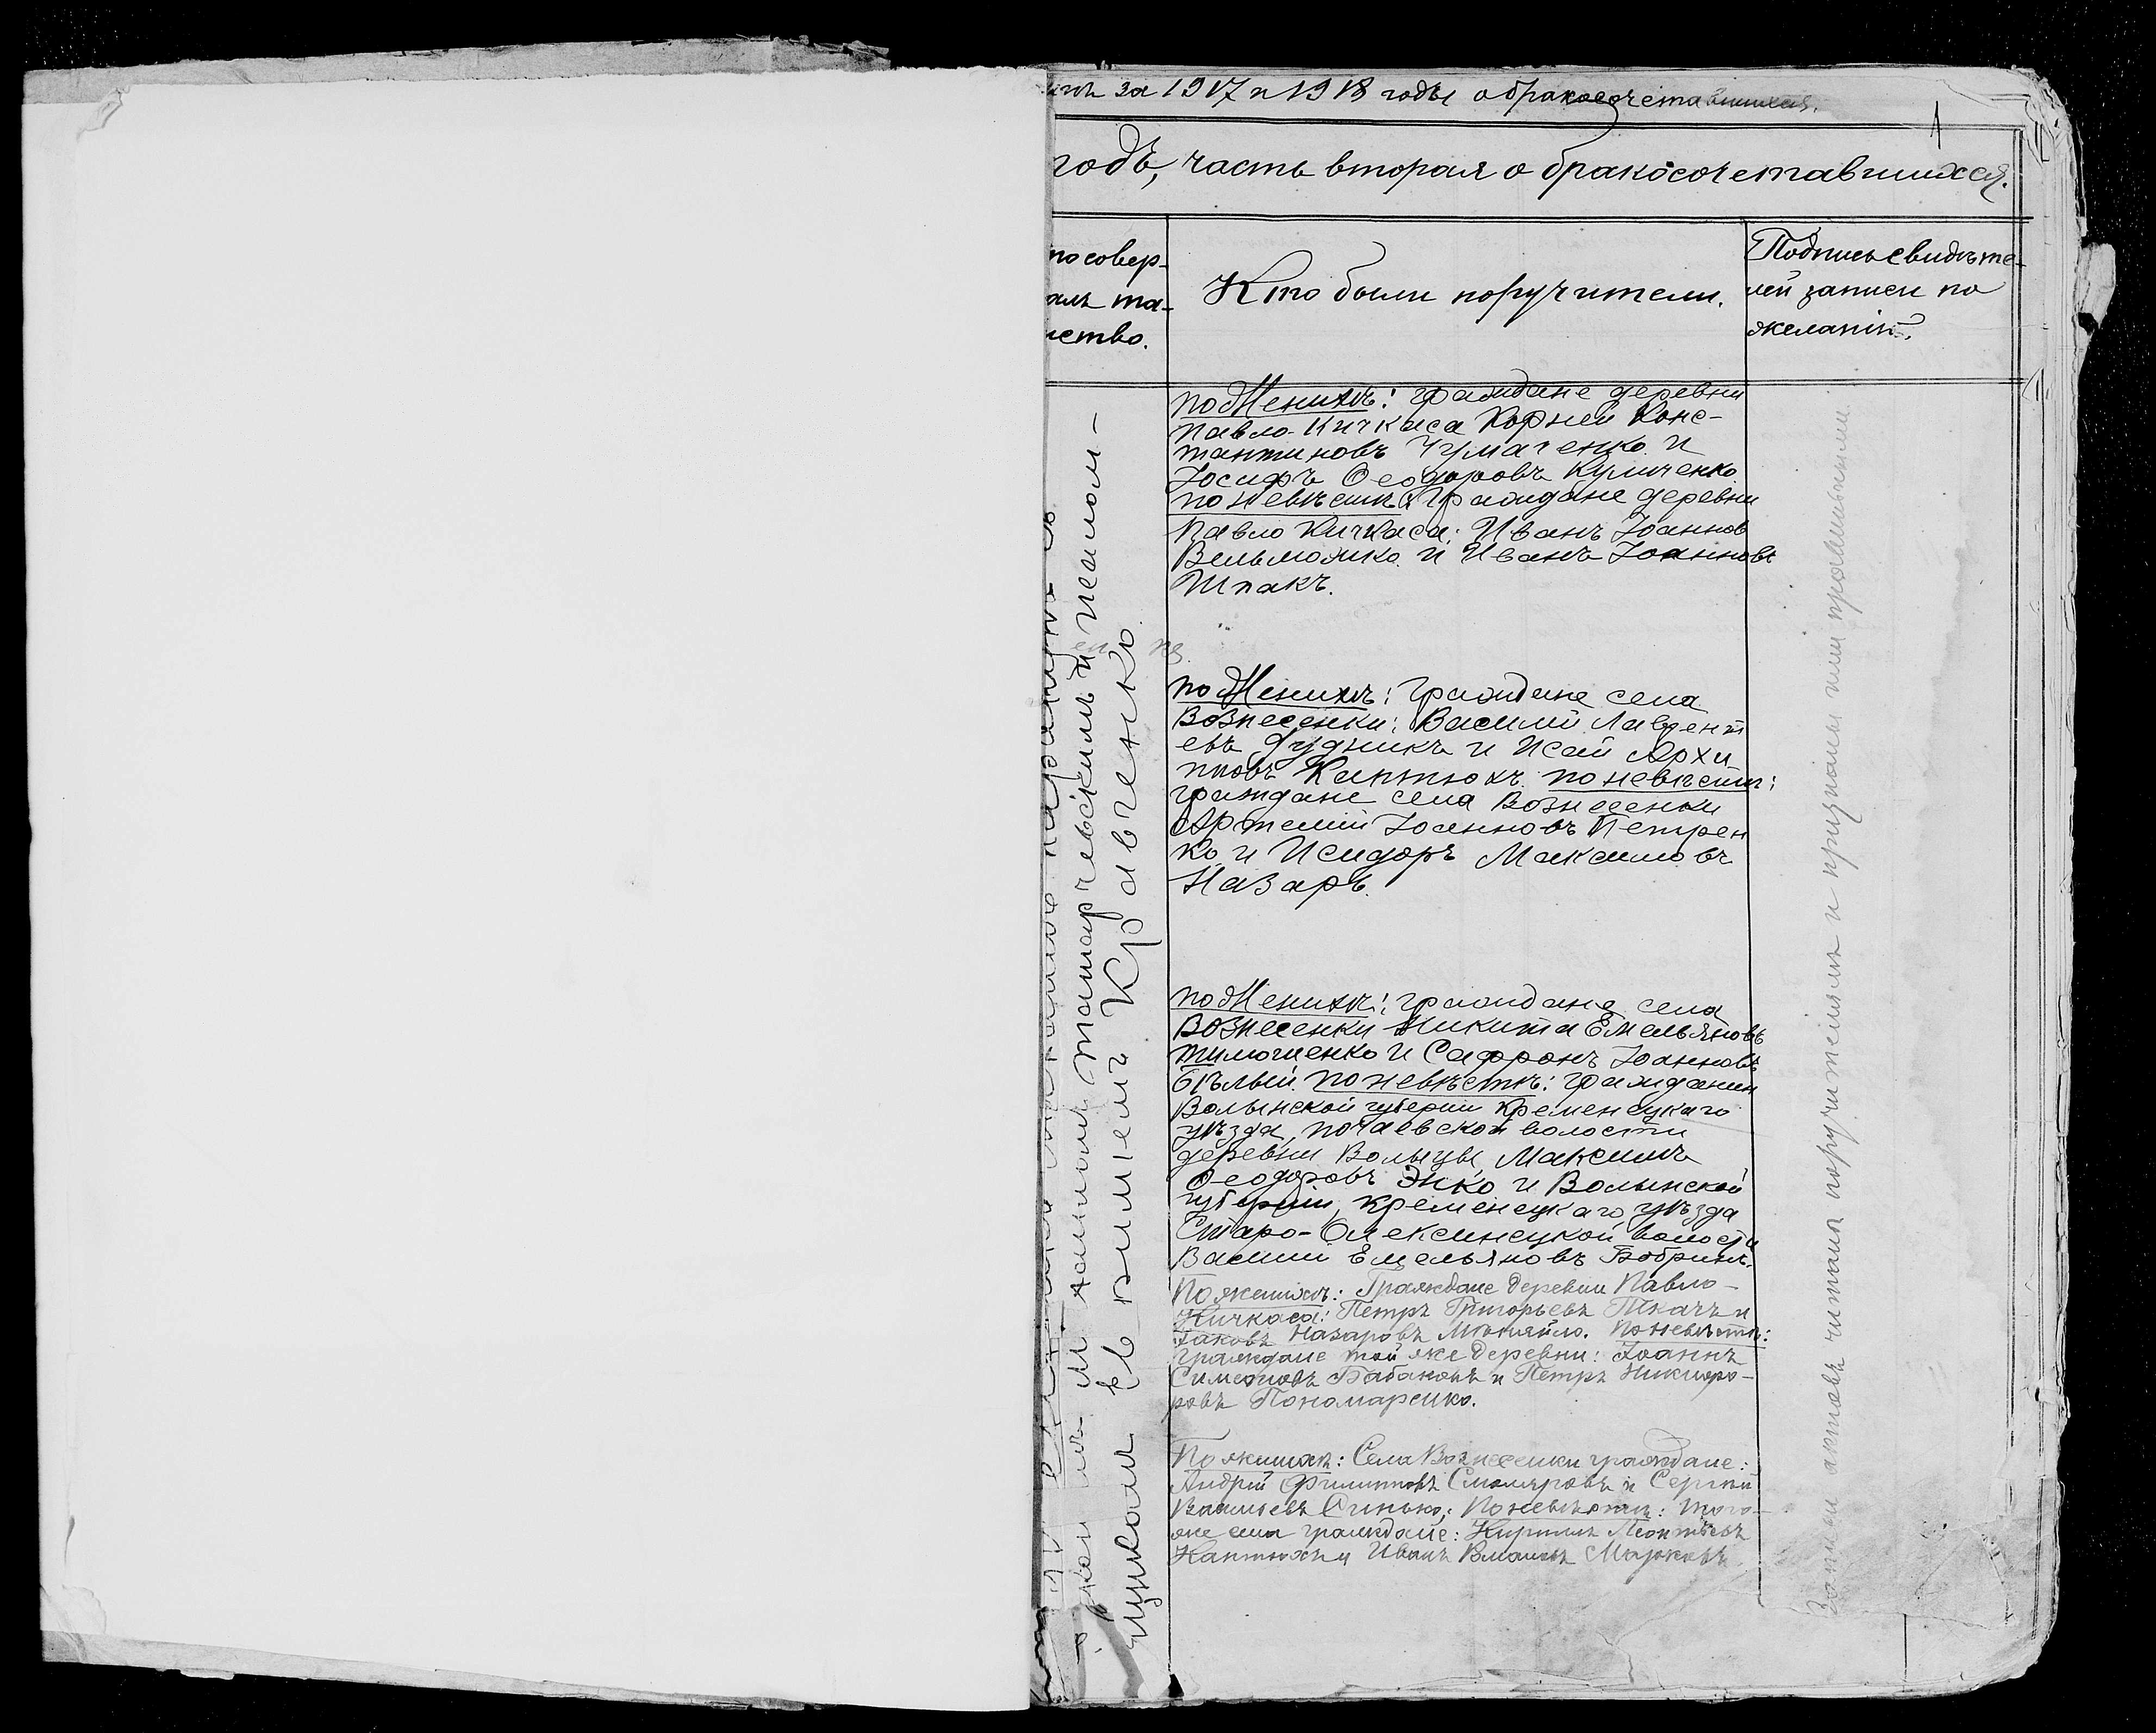 за 1917 и 1918 годы о бракосочетавшихся.
1
годъ, часть вторая о бракосочетавшихся.
то совер-
алъ та-
нство.
Кто были поручители.
Подпись свидѣте-
лей записи по
желанію.
по Женихѣ: граждане деревни
Павло-Кичкаса Корней Конс-
тантиновъ Чумаченко и
Іосифъ Ѳеодоровъ Куличенко
по невѣстѣ: граждане деревни
Павло Кичкаса: Иванъ Іоаннов
Вельможко и Иванъ Іоанновъ
Шпакъ.
по Женихѣ: граждане села
Вознесенки: Василій Лаврент
евъ Дудникъ и Исай Архи
повъ Каптюхъ. по невѣстѣ:
граждане села Вознесенки
Артемій Іоанновъ Петрен
ко и Исидоръ Максимовъ
Назаръ.
по Женихѣ: граждане села
Вознесенки Никита Емельяновъ
Тимошенко и Сафронъ Іоанновъ
Бѣлый. по невѣстѣ: гражданин
Волынской губерніи Кременецкаго
уѣзда, почаевской волости
деревни Волыцы, Максимъ
Ѳеодоровъ Энко и Волынской
губерніи, Кременецкаго уѣзда
Старо-Олексинецкой волости
Василій Емельяновъ Бобрикъ.
По женихѣ: Граждане деревни Павло-
Кичкаса: Петръ Григорьевъ Ткачъ и
Іаковъ Назаровъ Миняйло. По невѣстѣ:
граждане той же деревни: Іоаннъ
Симеоновъ Бабаковъ и Петръ Никифо-
ровъ Пономаренко.
По женихѣ: Села Вознесенки граждане:
Андрей Филипповъ Смоляровъ и Сергій
Васильевъ Синько; По невѣстѣ: того-
же села граждане: Кириллъ Леонтьевъ
Каптюхъ и Иванъ Марковъ
Кравченко
записи актовъ читали поручителямъ и признаны ими правильными.